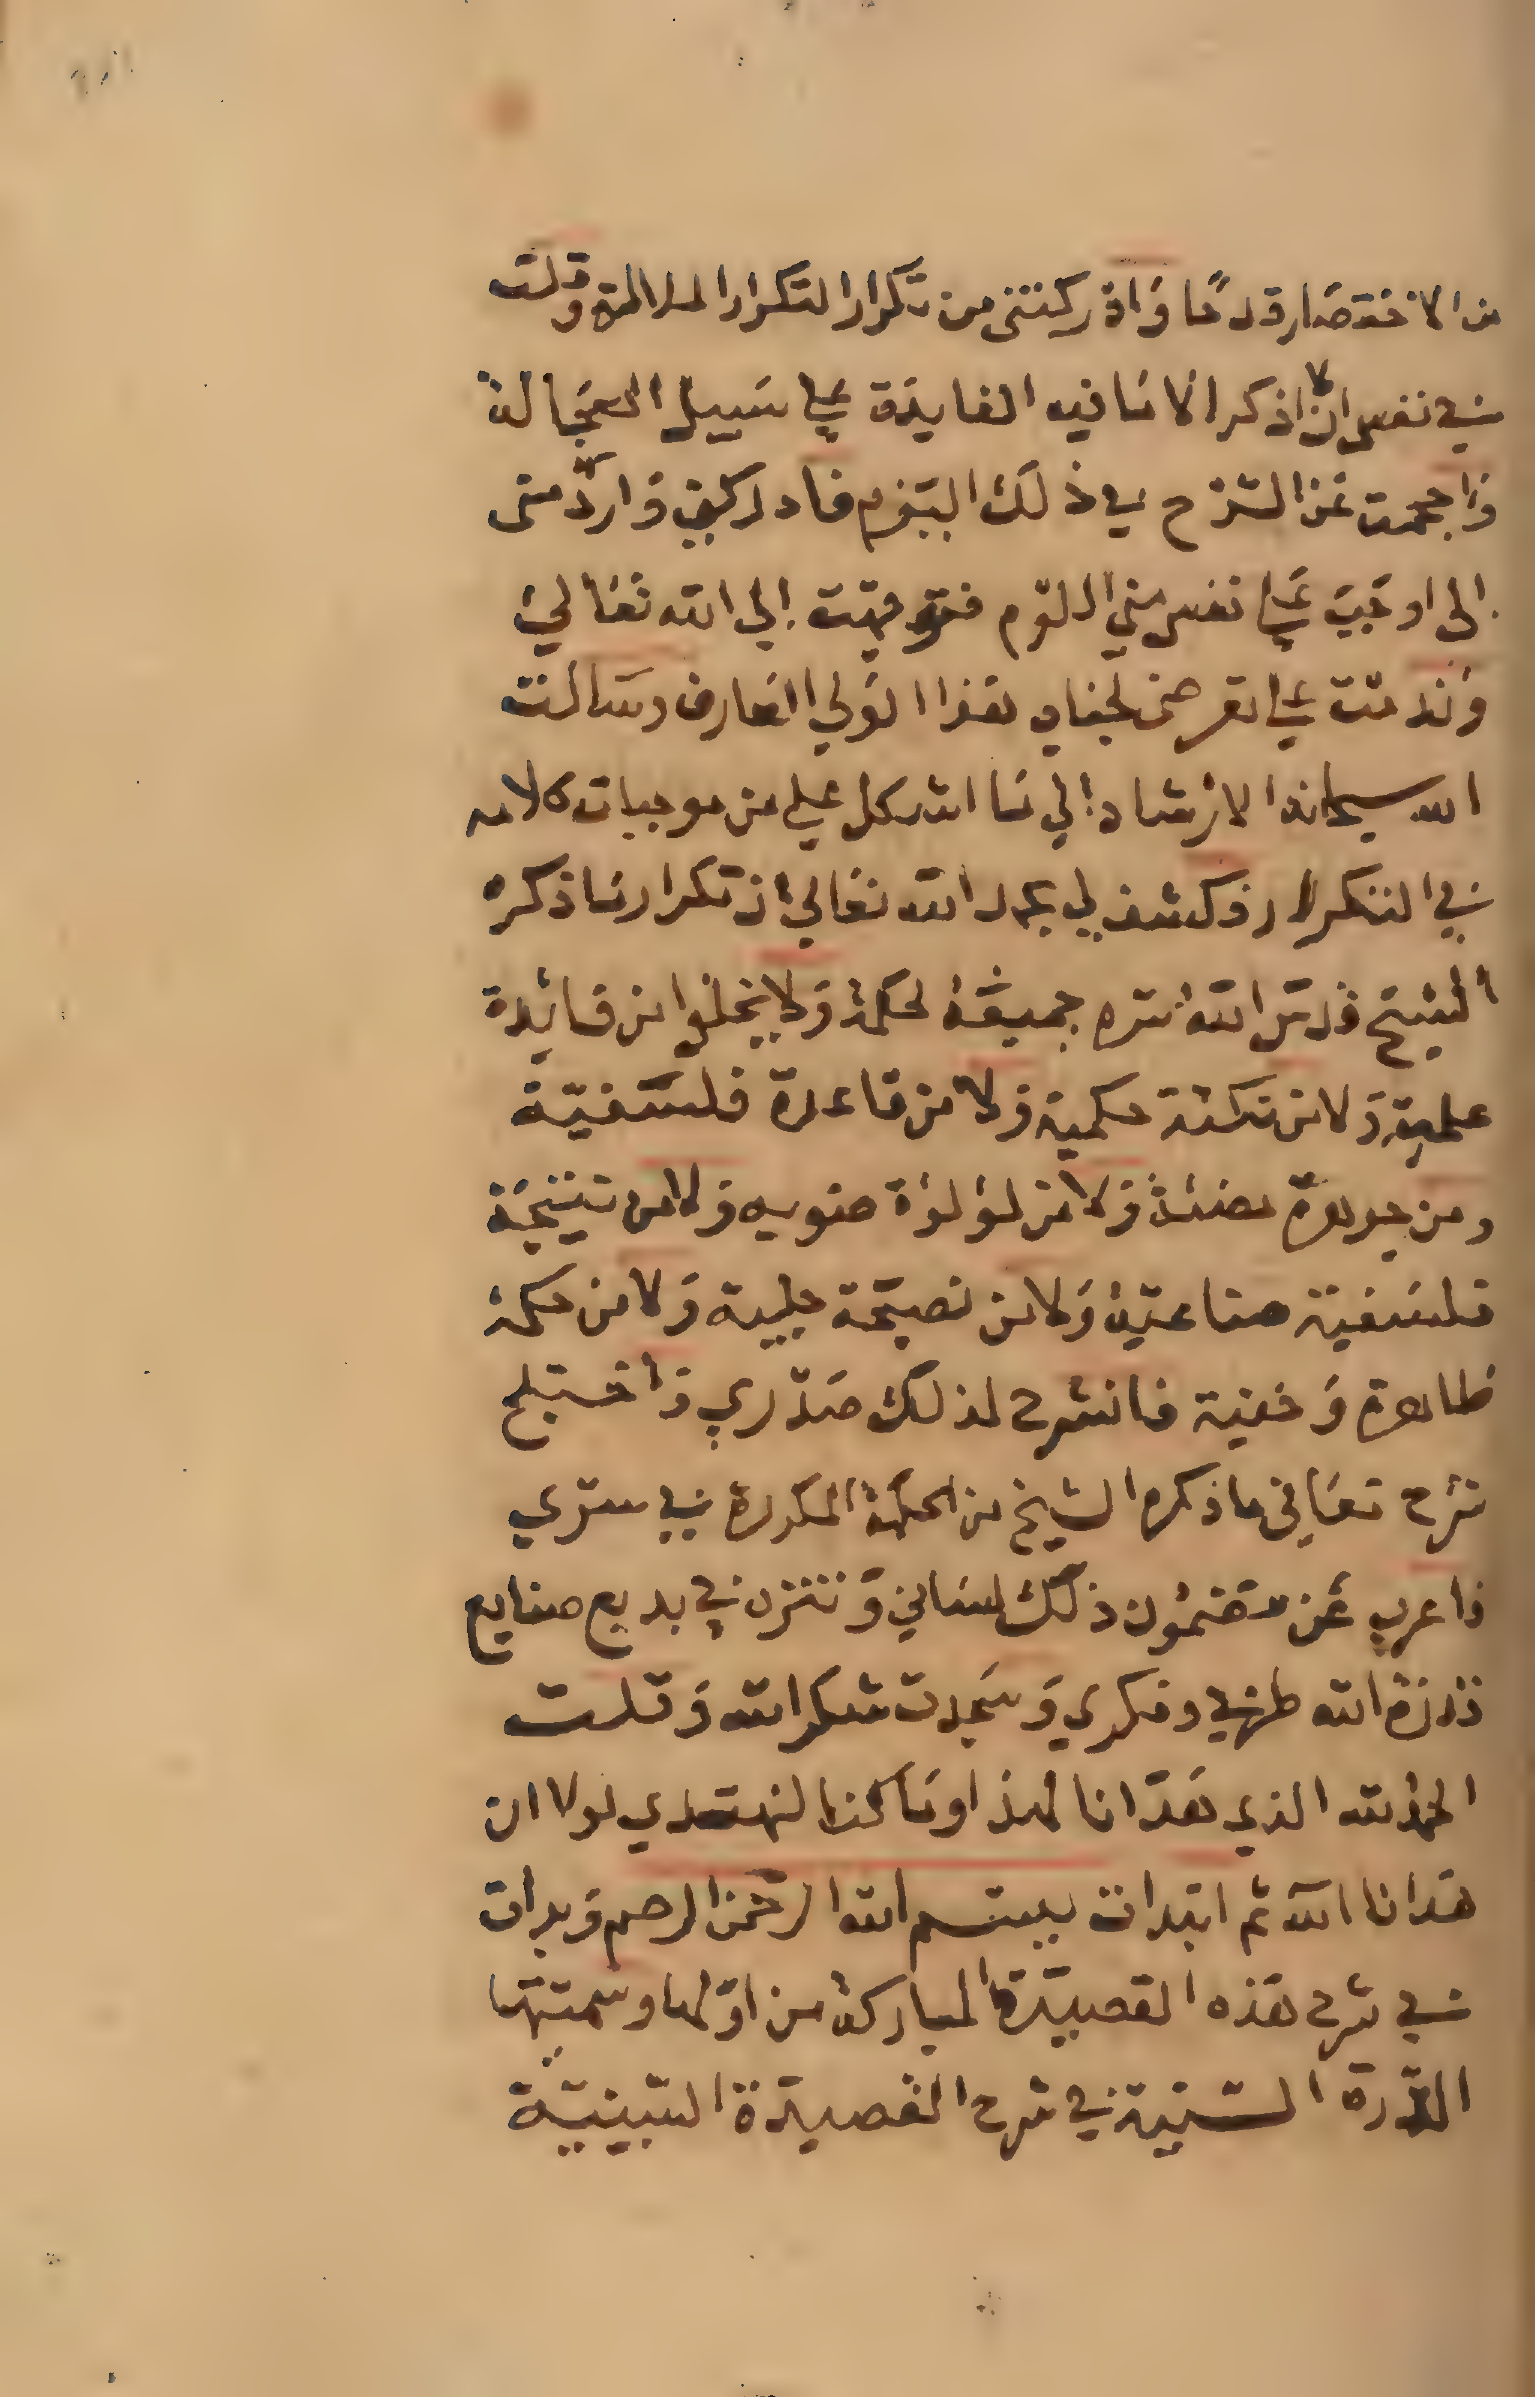 من الاختصار قدحا وادركتني من تكرار التكرار الملالة وقلت
في نفسي ان لا اذكر الا ما فيه الفايدة على سبيل العجالة
واجمت عن الشرح في ذلك اليوم فادركني وارد مني
الى اوجب على نفسي مني اللوم فتوجهت الى الله تعالى
وندمت على تعرضي لجناب هذا الولي العارف وسالت
الله سبحانه الارشاد الى ما اشكل علي من موجبات كلامه
في التكرار فكشف لي بحمد الله تعالى ان تكرار ما ذكره
الشيخ قدس الله سره جميعه لحكمة ولا يخلوا من فائدة
علمية ولا من نكتة حكمية ولا من قاعدة فلسفية
ومن جوهرة مضئة ولا من لؤلؤة ضويه ولا من نتيجة
فلسفية صناعية ولا من نصيحة جلية ولا من حكمة
ظاهرة وخفية فانشرح لذلك صدري واختلج
شرح معاني ما ذكره الشيخ من الحكمة المكررة في سري
فاعرب عن مضمون ذلك لساني وتنزه في بديع صنايع
الله طرفي وفكري وسجدت شكرا لله وقلت
الحمد لله الذي هدانا لهذا وما كنا لنهتدي لولا ان
هدانا الله ثم ابتدات ببسم الله الرحمن الرحيم وبدات
في شرح هذه القصيدة المباركة من اولها وسميتها
الدرة السنية في شرح القصيدة السينية